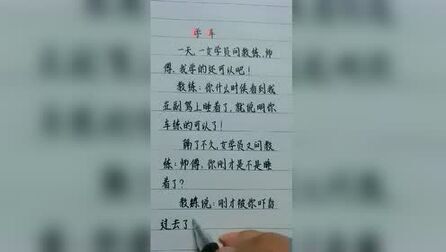 学车
一天,一女学员问教练,师
傅,我学的还可以吧!
教练:你什么时候看到我
在副驾上睡着了,就说明你
车练的可以了!
隔了不久,女学员又问教
练:师傅,你刚才是不是睡
着了?
教练说:刚才被你吓昏
过去了